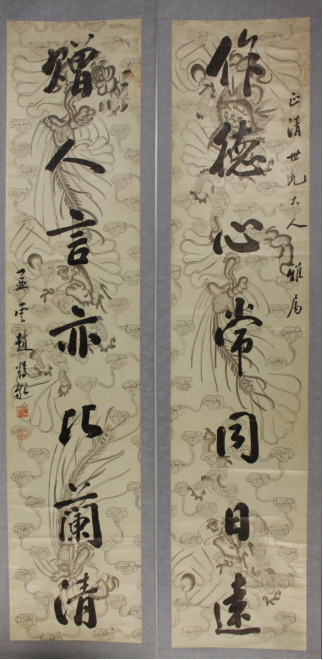 作德心常同日遠
正清世兄大人雅属
贈人言亦比蘭清
孟云趙鶴齡